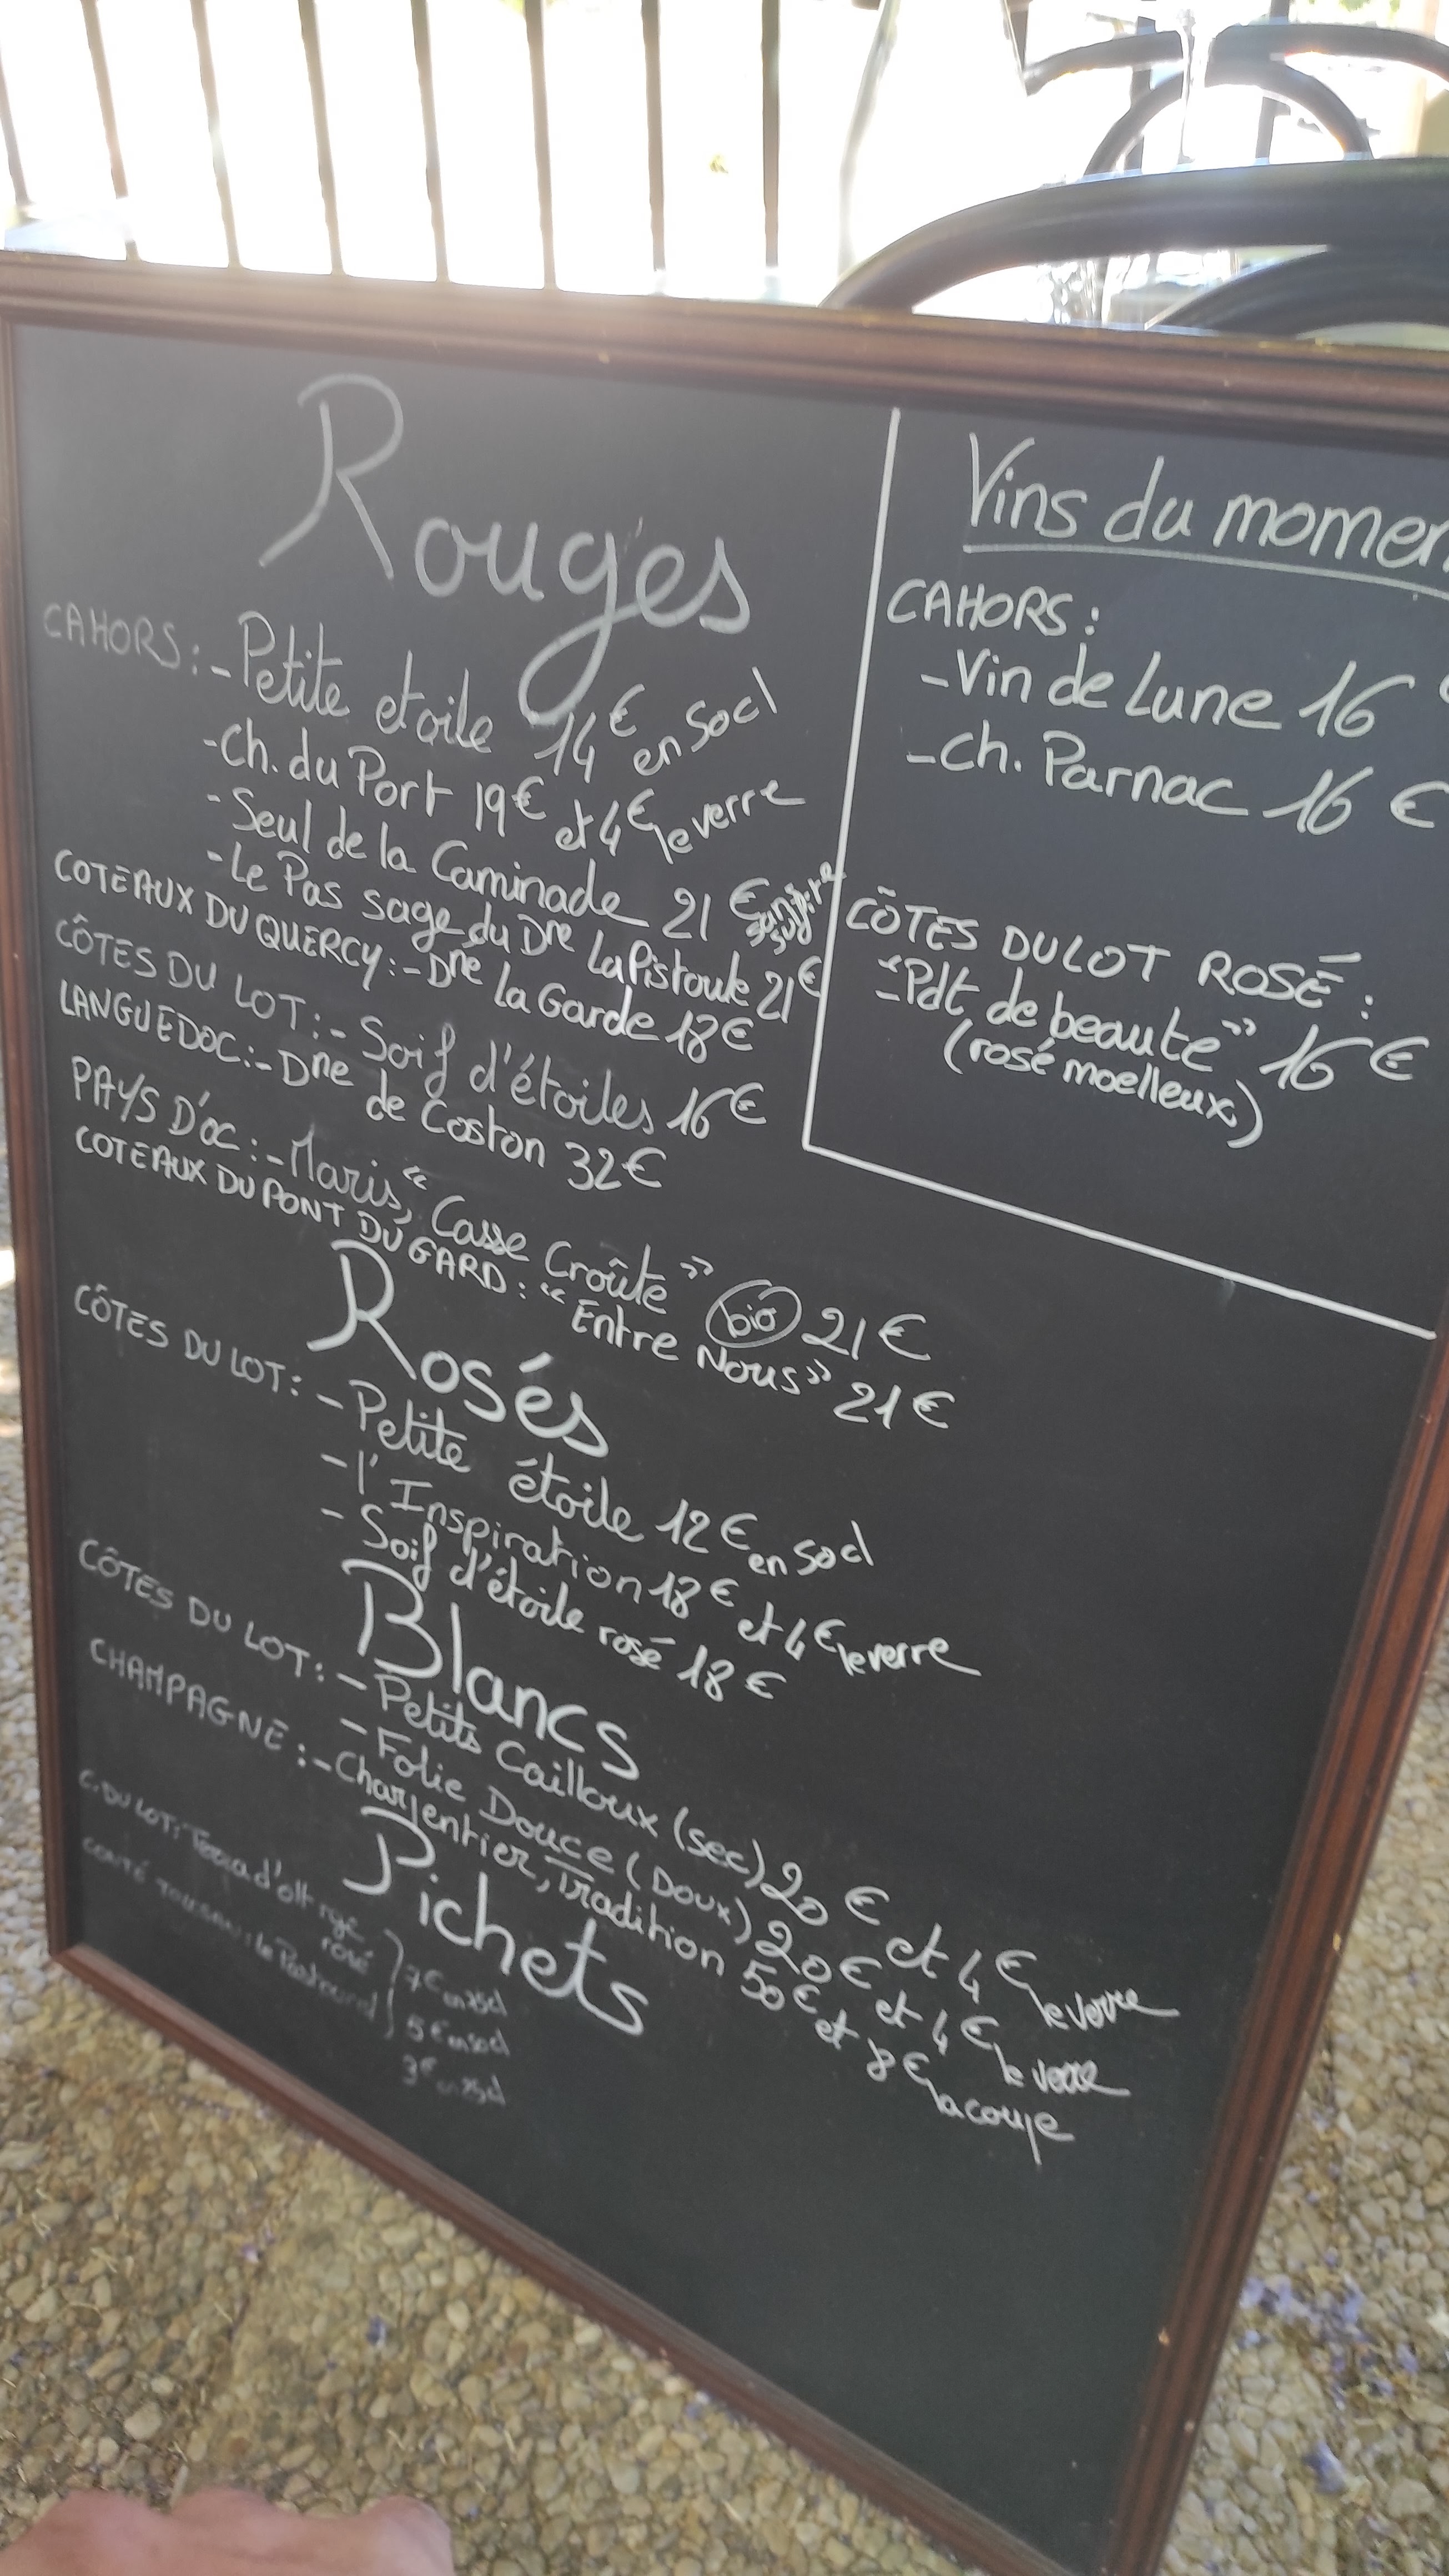 Rouges
CAHORS: - Petite etoile 14€ en 50cl
- Ch. du Port 19€ et 4€ le verre
- Seul de la Caminade 21€
- Le Pas sage du Dne La Pistoule 21€
COTEAUX DU QUERCY: - Dne La Garde 18€
CÔTES DU LOT: - Soif d'étoiles 16€
LANGUEDOC: - Dne de Coston 32€
PAYS D'OC: - Maris, "Casse Croûte" bio 21€
COTEAUX DU PONT DU GARD: "Entre Nous" 21€
Rosés
CÔTES DU LOT: - Petite étoile 12€ en 50cl
- l'Inspiration 18€ et 4€ le verre
- Soif d'étoile rosé 18€
Blancs
CÔTES DU LOT: - Petits Cailloux (sec) 20€ et 4€ le verre
- Folie Douce (Doux) 20€ et 4€ le verre
CHAMPAGNE: - Charpentier, Tradition 50€ et 8€ la coupe
Pichets
C. DU LOT: Terra d'olt rge
rosé
7€ en 75cl
5€ en 50cl
3€ en 25cl
Vins du momen
CAHORS:
- Vin de Lune 16 €
- Ch. Parnac 16 €
CÔTES DU LOT ROSÉ:
- "Pdt de beauté" 16€
(rosé moelleux)